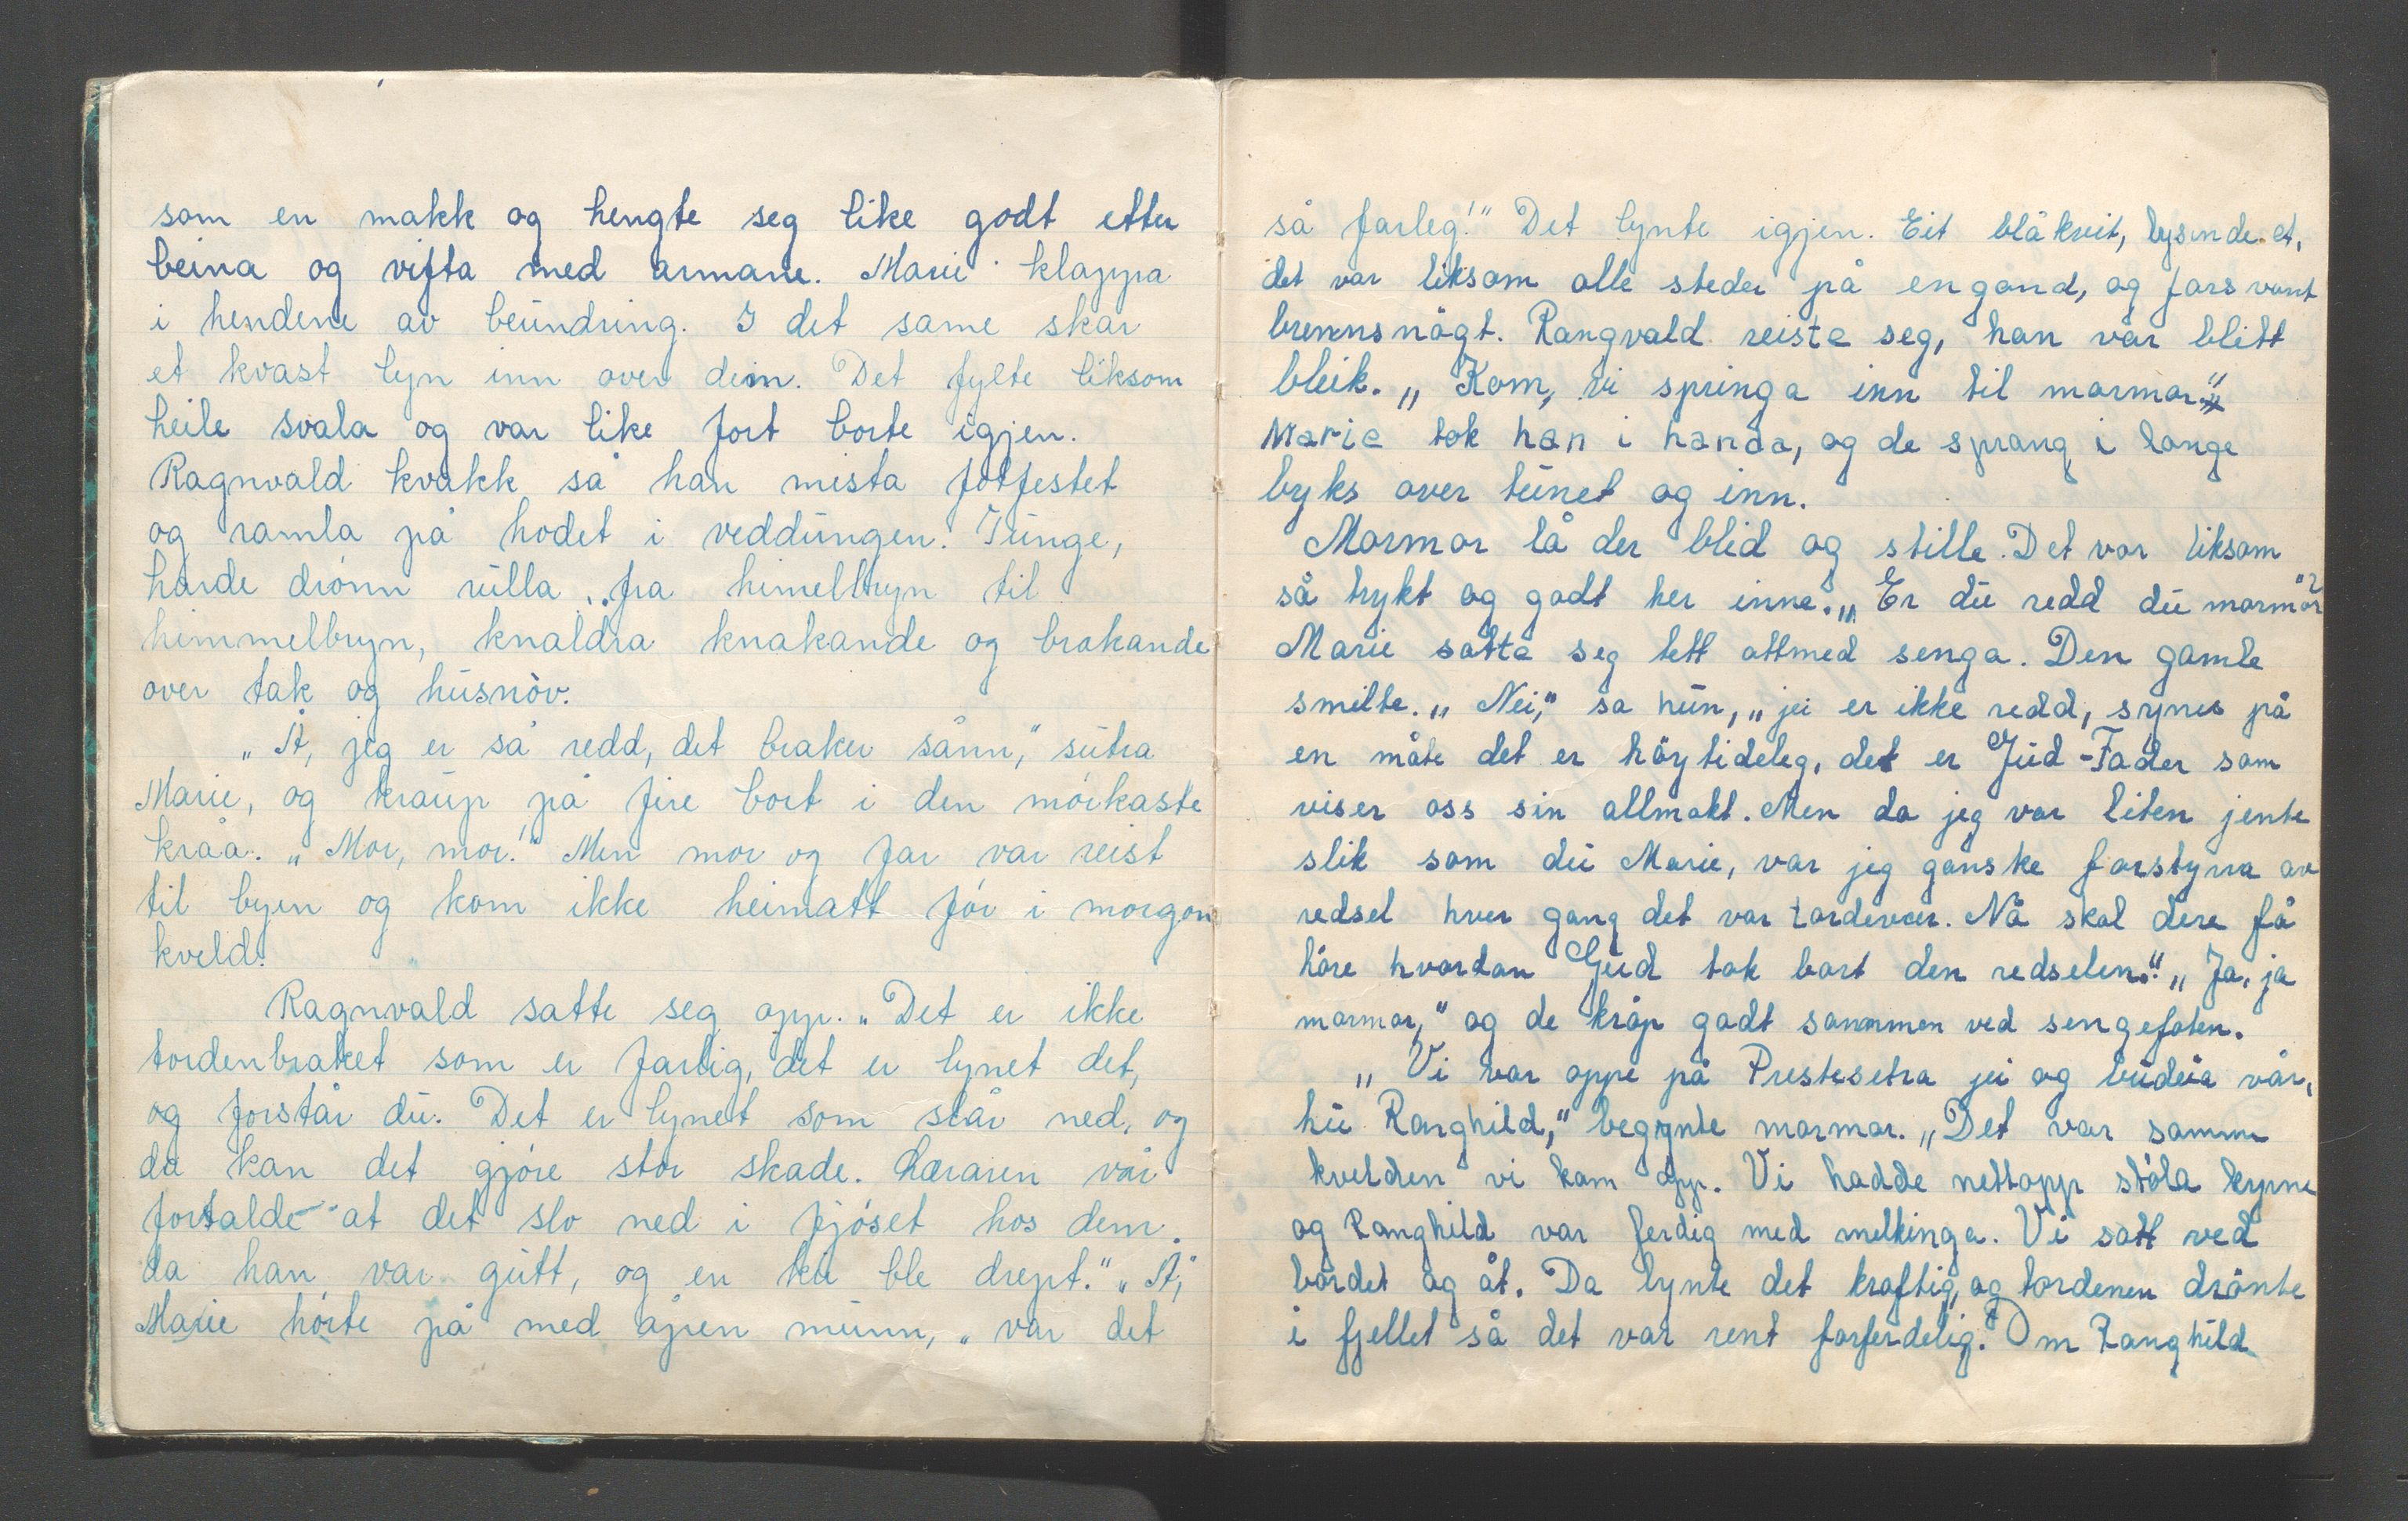 som en makk og hengte seg like godt etter
beina og vifta med armane. Marie klappa
i hendene av beundring. I det same skar
et kvast lyn inn over dem. Det fylte liksom
heile svala og var like fort borte igjen.
Ragnvald kvakk så han mista fotfestet
og ramla på hodet i veddungen. Tunge,
harde drønn rulla fra himelbryn til
himmelbryn, knaldra knakande og brakande
over tak og husnòv.
„Å, jeg er så redd, det braker sånn," sutra
Marie, og kraup på fire bort i den mørkaste
kråa. „Mor, mor!" Men mor og far var reist
til byen og kom ikke heimatt før i morgon
kveld.
Ragnvald satte seg opp. „Det er ikke
tordenbraket som er farlig, det er lynet det,
og forstår du. Det er lynet som slår ned, og
da kan det gjøre stor skade. Læraren vår
fortalde at det slo ned i fjøset hos dem
da han var gutt, og en ku ble drept." „Å,"
Marie hørte på med åpen munn, „var det
så farleg!" Det lynte igjen. Eit blåkvit, lysende et,
det var liksom alle steder på engand, og fors vant
brennsnögt. Rangvald reiste seg, han var blitt
bleik. „Kom, vi springa inn til mormor."
Marie tok han i handa, og de sprang i lange
byks over tunet og inn.
Mormor lå der blid og stille. Det var liksom
så trykt og godt her inne. „Er du redd du mormor"?
Marie satte seg tett attmed senga. Den gamle
smilte. „Nei," sa hun, „jei er ikke redd, synes på
en måte det er höytideleg, det er Gud-Fader som
viser oss sin allmakt. Men da jeg var liten jente
slik som du Marie, var jeg ganske forstyrra av
redsel hver gang det var tordevær. Nå skal dere få
höre hvordan Gud tok bort den redselen." „Ja, ja
mormor," og de kråp godt sammen ved sengefoten.
„Vi var oppe på Prestesetra jei og budeia vår,
hu Ranghild," begynte mormor. „Det var samme
kvelden vi kom opp. Vi hadde nettopp støla kyrne
og Ranghild var ferdig med melkinga. Vi satt ved
bordet og åt. Da lynte det kraftig, og tordenen drönte
i fjellet så det var rent forferdelig. Om Ranghild